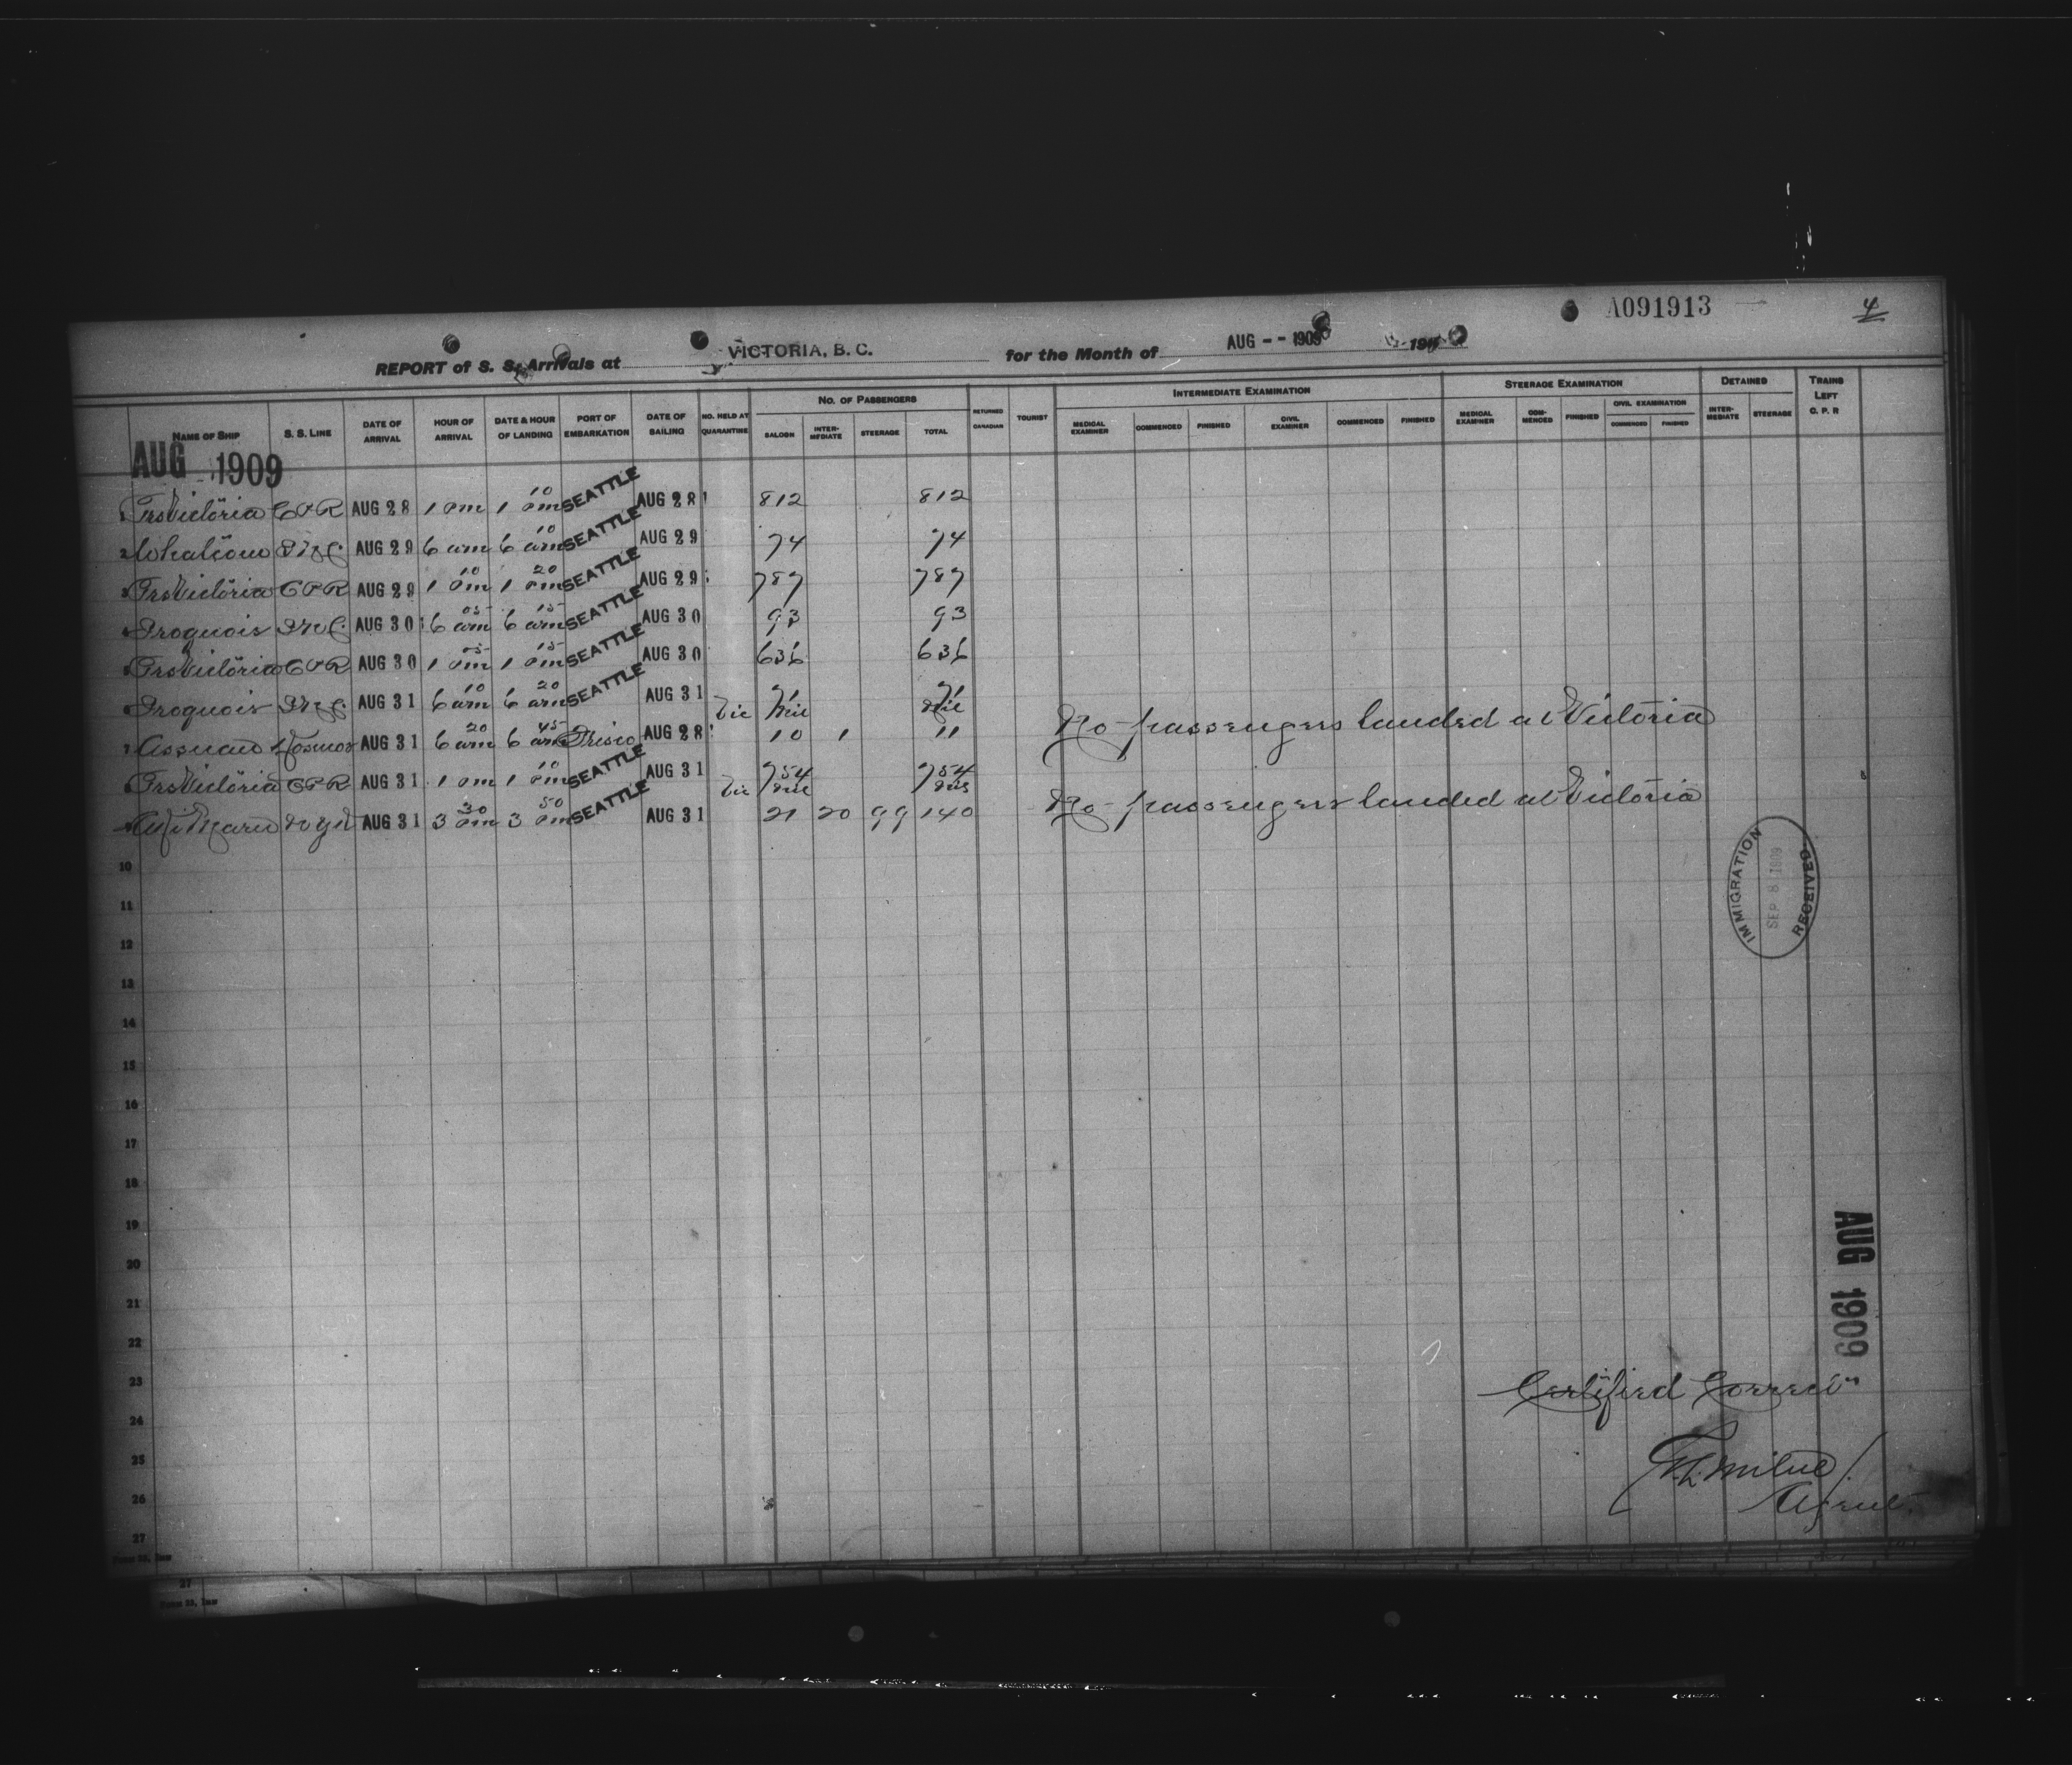 A091913 4
REPORT of S. S. Arrivals at VICTORIA, B. C. for the Month of AUG -- 1909 191
NAME OF SHIP S. S. LINE DATE OF ARRIVAL HOUR OF ARRIVAL DATE & HOUR OF LANDING PORT OF EMBARKATION DATE OF SAILING NO. HELD AT QUARANTINE NO. OF PASSENGERS SALOON INTERMEDIATE STEERAGE TOTAL RETURNED CANADIAN TOURIST INTERMEDIATE EXAMINATION MEDICAL EXAMINER COMMENCED FINISHED CIVIL EXAMINER COMMENCED FINISHED STEERAGE EXAMINATION MEDICAL EXAMINER COMMENCED FINISHED CIVIL EXAMINATION COMMENCED FINISHED DETAINED INTERMEDIATE STEERAGE TRAINS LEFT C. P. R
AUG 1909
1 Prs Victoria CPR AUG 28 1 pm 1 10 pm SEATTLE AUG 28 812 812
2 Whatcom AUG 29 6 am 6 10 am SEATTLE AUG 29 74 74
3 Prs Victoria CPR AUG 29 1 10 pm 1 20 pm SEATTLE AUG 29 787 787
4 Iroquois AUG 30 6 05 am 6 15 am SEATTLE AUG 30 93 93
5 Prs Victoria CPR AUG 30 1 05 pm 1 15 pm SEATTLE AUG 30 636 636
6 Iroquois AUG 31 6 10 am 6 20 am SEATTLE AUG 31 71 71
Vic Nil Nil No passengers landed at Victoria
7 Assuan Kosmos AUG 31 6 20 am 6 45 am Frisco AUG 28 10 1 11
8 Prs Victoria CPR AUG 31 1 pm 1 10 pm SEATTLE AUG 31 754 754
Vic Nil Nil No passengers landed at Victoria
9 Maru AUG 31 3 30 pm 3 50 pm SEATTLE AUG 31 21 20 99 140
IMMIGRATION
SEP 8 1909
RECEIVED
10
11
12
13
14
15
16
17
18
19
20
21
22
23
24
25
26
27
AUG 1909
Certified Correct
Milne
Agent.
27